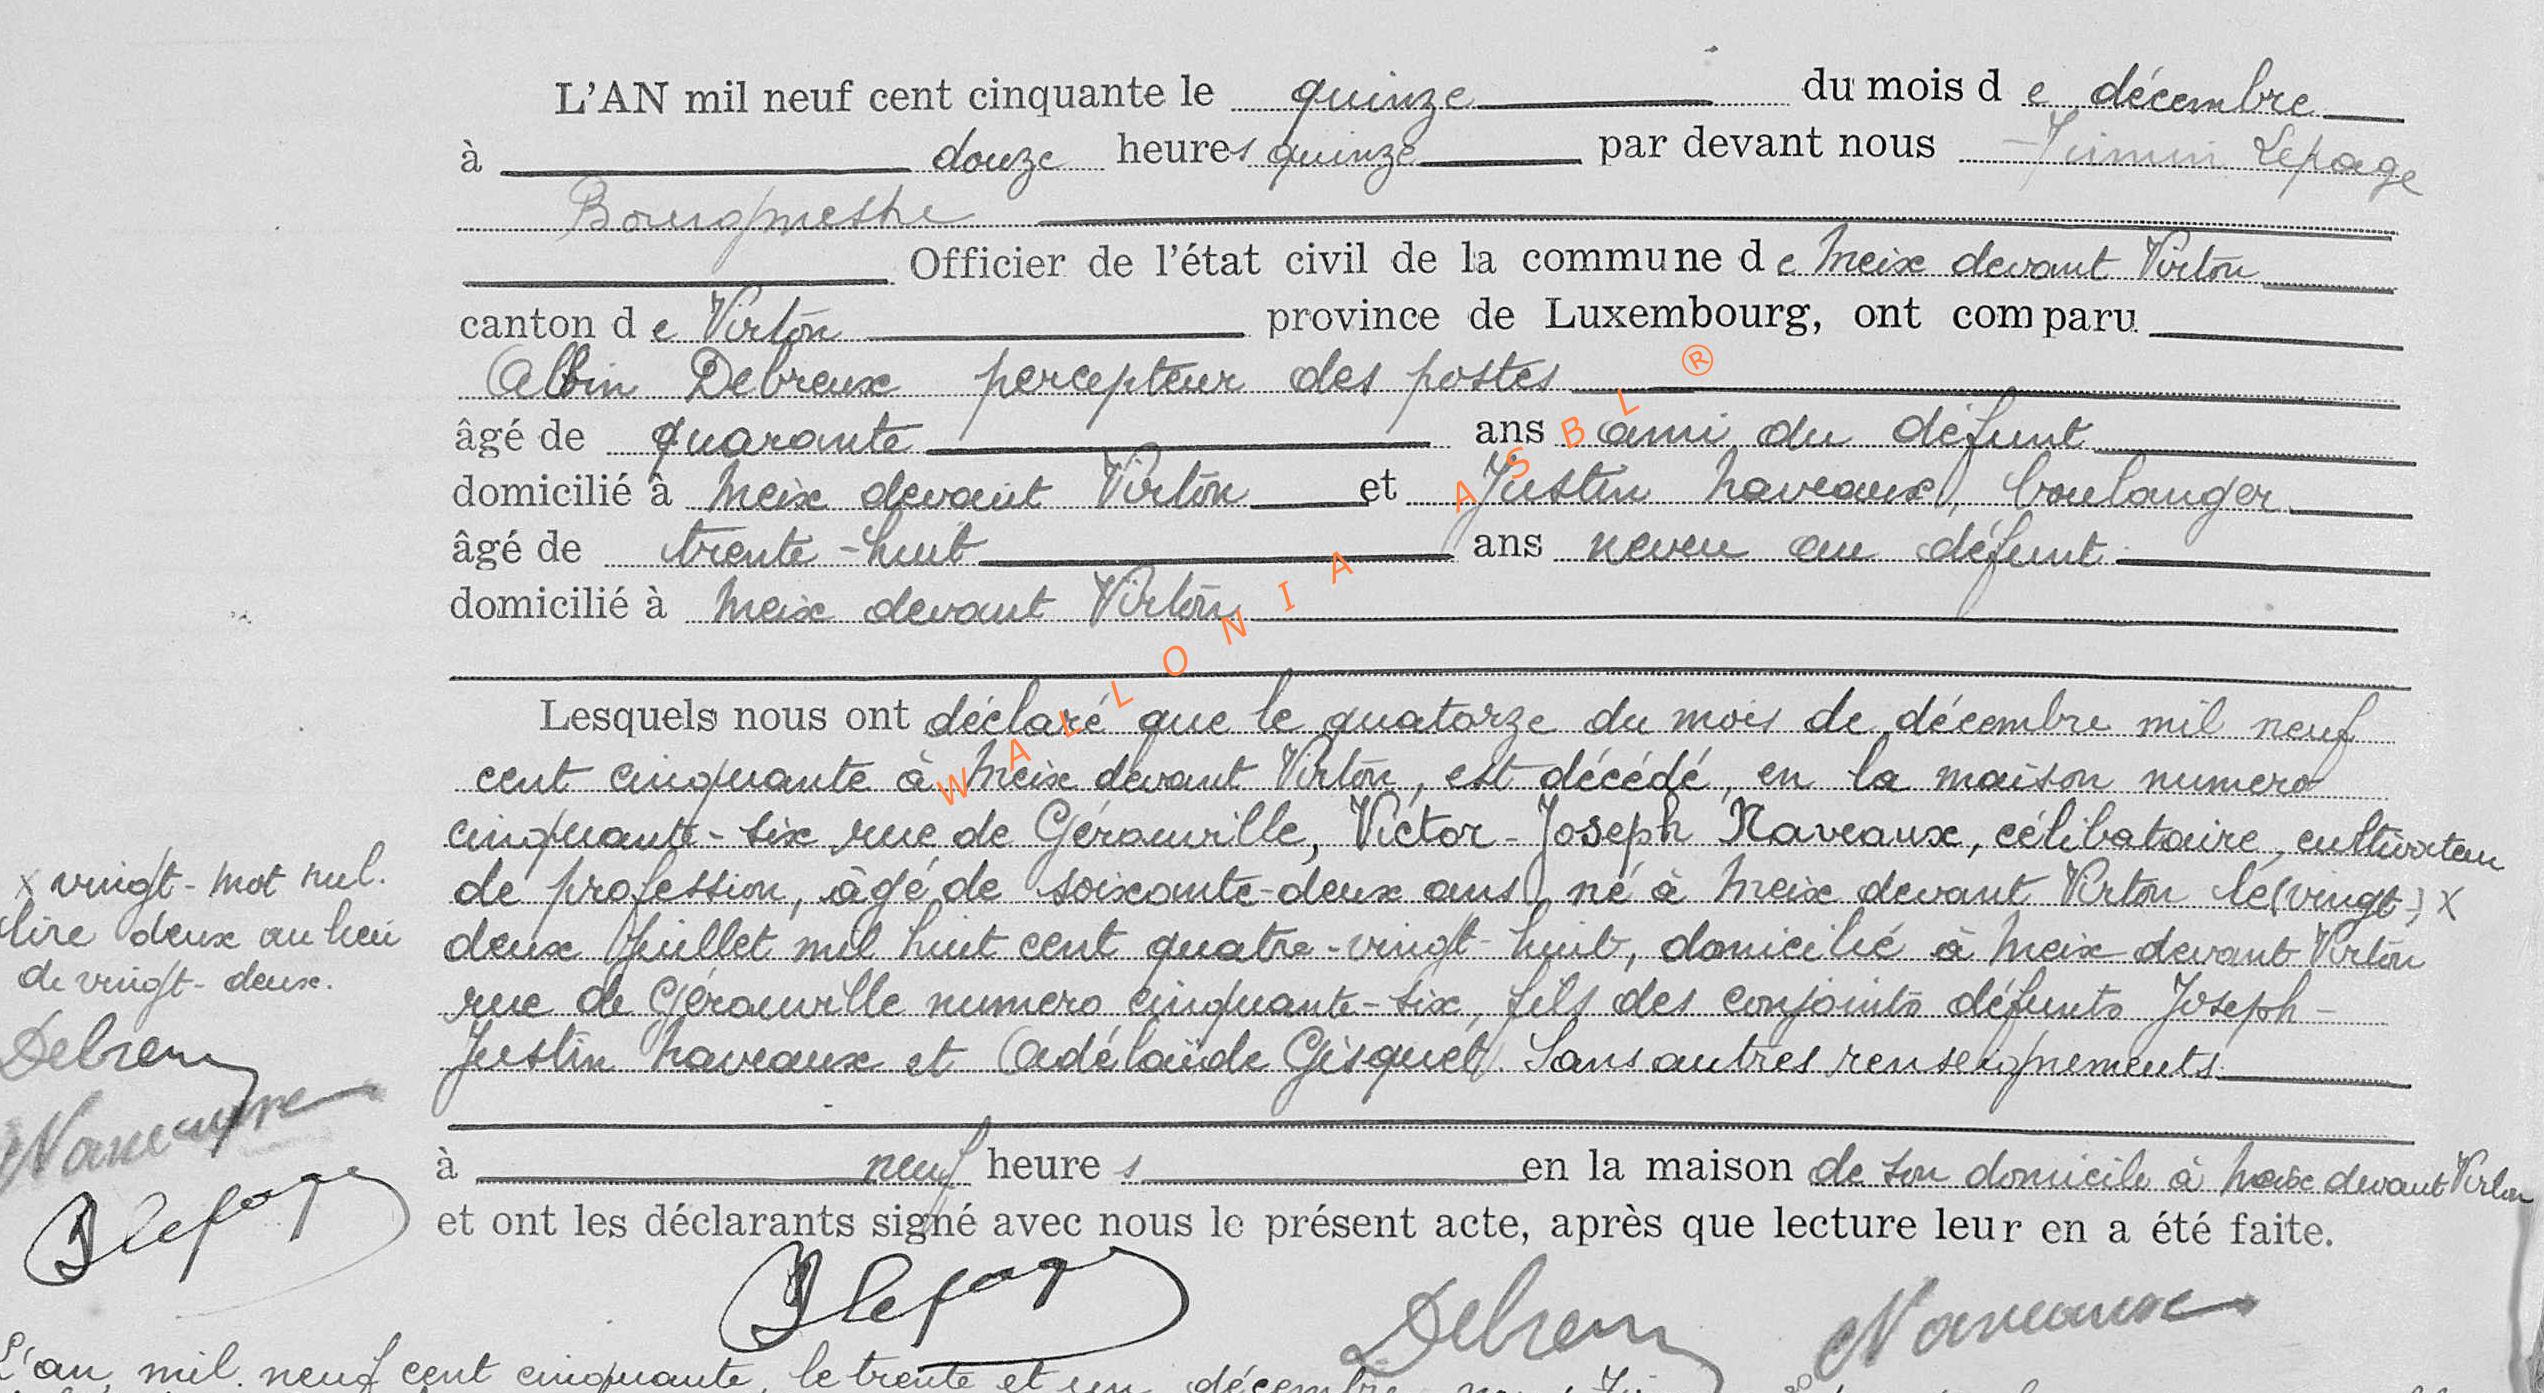 L'AN mil neuf cent cinquante le quinze du mois de décembre
à douze heures quinze par devant nous Firmin Lepage
Bourgmestre
Officier de l'état civil de la commune de Meix devant Virton
canton de Virton province de Luxembourg, ont comparu
Albin Debreux percepteur des postes
âgé de quarante ans ami du défunt
domicilié à Meix devant Virton et Justin Naveaux, boulanger
âgé de trente-huit ans neveu au défunt
domicilié à Meix devant Virton
WALLONIA ASBL ®
Lesquels nous ont déclaré que le quatorze du mois de décembre mil neuf
cent cinquante à Meix devant Virton, est décédé, en la maison numero
cinquante-six rue de Gérouville, Victor-Joseph Naveaux, célibataire, cultivateur
de profession, âgé de soixante-deux ans, né à Meix devant Virton le (vingt-) x
deux juillet mil huit cent quatre-vingt-huit, domicilié à Meix devant Virton
rue de Gérouville numero cinquante-six, fils des conjoints défunts Joseph-
Justin Naveaux et Adélaïde Gisquet. Sans autres renseignements.
x vingt- mot nul.
lire deux au lieu
de vingt-deux.
Debreux
Naveaux
Lepage
à neuf heures en la maison de son domicile à Meix devant Virton
et ont les déclarants signé avec nous le présent acte, après que lecture leur en a été faite.
Lepage Debreux Naveaux
L'an mil neuf cent cinquante, le trente et un décembre